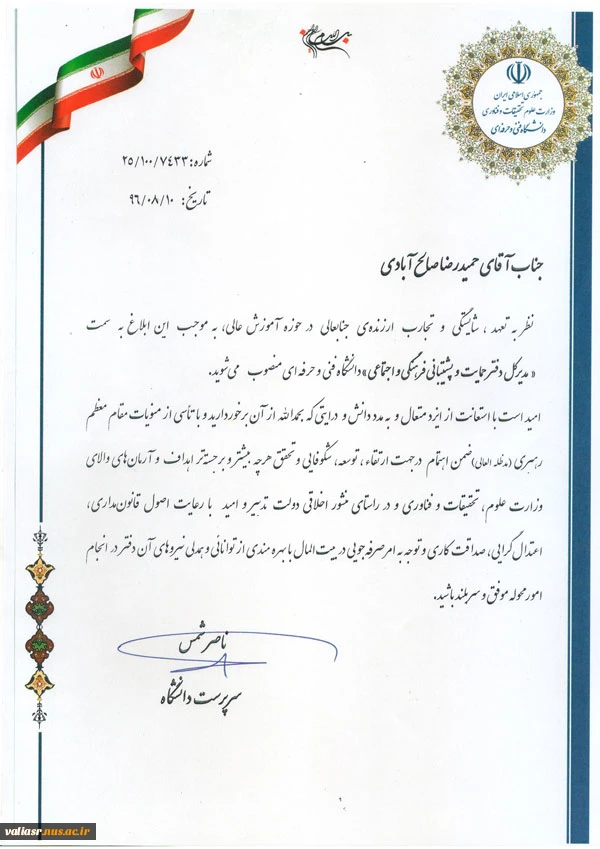 جمهوری اسلامی ایران
وزارت علوم تحقیقات و فناوری
دانشگاه فنی و حرفه‌ای
شماره: ۲۵/۱۰۰/۷۴۳۳
تاریخ: ۹۶/۰۸/۱۰
جناب آقای حمیدرضا صالح آبادی
نظر به تعهد ، شایستگی و تجارب ارزنده‌ی جنابعالی در حوزه آموزش عالی، به موجب این ابلاغ به سمت
« مدیرکل دفتر حمایت و پشتیبانی فرهنگی و اجتماعی» دانشگاه فنی و حرفه ای منصوب می‌شوید.
امید است با استعانت از ایزد متعال و به مدد دانش و درایتی که بحمدالله از آن برخوردارید و با تأسی از منویات مقام معظم
رهبری (مدظله العالی) ضمن اهتمام در جهت ارتقاء ، توسعه، شکوفایی و تحقق هرچه بیشتر و برجسته‌تر اهداف و آرمان‌های والای
وزارت علوم، تحقیقات و فناوری و در راستای منشور اخلاقی دولت تدبیر و امید با رعایت اصول قانون‌مداری،
اعتدال گرایی، صداقت کاری و توجه به امر صرفه جویی در بیت المال با بهره مندی از توانائی و همدلی نیروهای آن دفتر در انجام
امور محوله موفق و سربلند باشید.
ناصر شمس
سرپرست دانشگاه
valiasr.nus.ac.ir